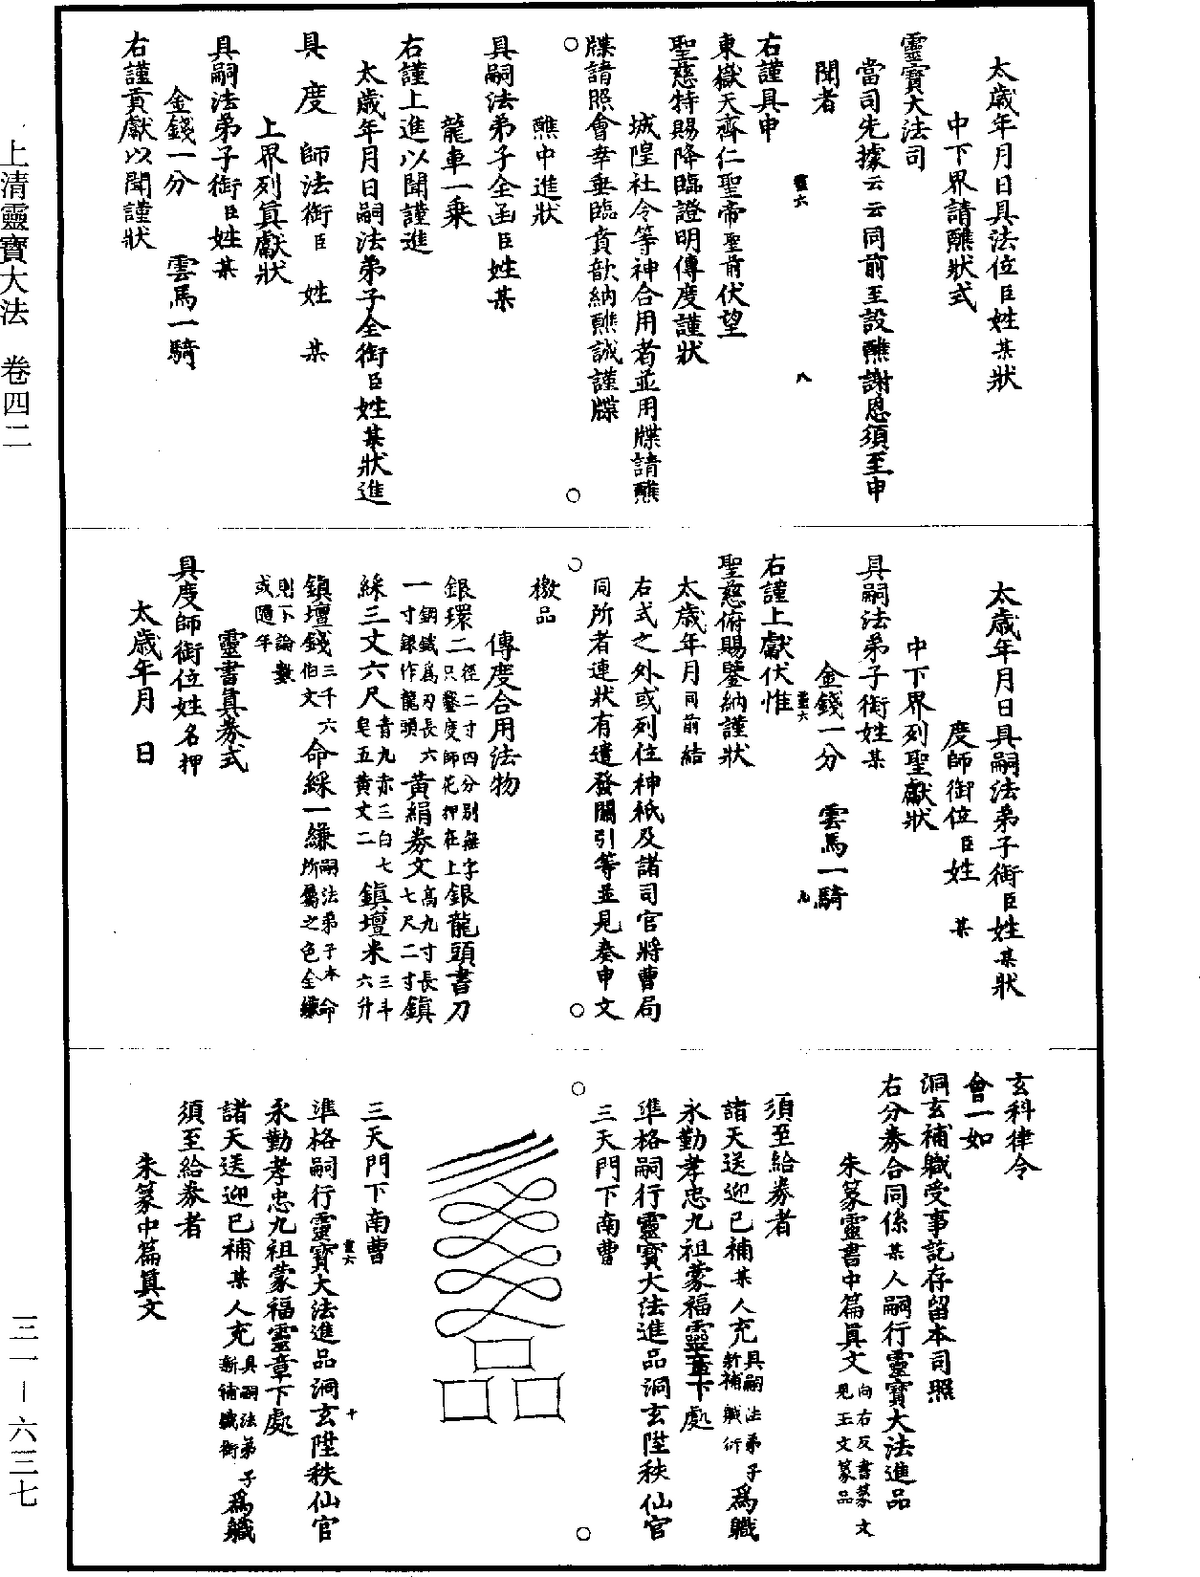 太歲年月日具法位臣姓某狀
中下界請醮狀式
靈寶大法司
當司先據云云同前至設醮謝恩須至申
聞者
靈六
八
右謹具申
東嶽天齊仁聖帝聖前伏望
聖慈特賜降臨證明傳度謹狀
城隍社令等神合用者並用牒請醮
牒請照會幸垂臨賁歆納醮誠謹牒
醮中進狀
具嗣法弟子全函臣姓某
龍車一乘
右謹上進以聞謹進
太歲年月日嗣法弟子全銜臣姓某狀進
具度師法銜臣姓某
上界列真獻狀
具嗣法弟子銜臣姓某
金錢一分 雲馬一騎
右謹貢獻以聞謹狀
太歲年月日具嗣法弟子銜臣姓某狀
度師銜位臣姓某
中下界列聖獻狀
具嗣法弟子銜姓某
金錢一分 雲馬一騎
靈六
九
右謹上獻伏惟
聖慈俯賜鑒納謹狀
太歲年月同前結
右式之外或列位神祇及諸司官將曹局
同所者連狀有遣發關引等並見奏申文
檄品
傳度合用法物
銀環二徑二寸四分別無字只鑿度師花押在上銀龍頭書刀
一鋼鐵為刃長六寸銀作龍頭黃絹券文高九寸長七尺二寸鎮
綵三丈六尺青九赤三白七皂五黃丈二鎮壇米三斗六升
鎮壇錢三千六伯文命綵一縑嗣法弟子本命所屬之色全縑
則下論數或隨年
靈書真券式
具度師銜位姓名押
太歲年月 日
玄科律令
會一如
洞玄補職受事訖存留本司照
右分券合同係某人嗣行靈寶大法進品
朱篆靈書中篇真文向右反書篆文見玉文篆品
須至給券者
諸天送迎已補某人充具嗣法弟子新補職銜為職
永勤孝忠九祖蒙福靈章下處
準格嗣行靈寶大法進品洞玄陞秩仙官
三天門下南曹
三天門下南曹
靈六
十
準格嗣行靈寶大法進品洞玄陞秩仙官
永勤孝忠九祖蒙福靈章下處
諸天送迎已補某人充具嗣法弟子新補職銜為職
須至給券者
朱篆中篇真文
上清靈寶大法 卷四二
三一－六三七